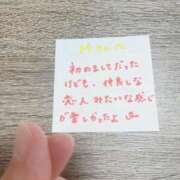 初めましてだった
けども、仲良しな
恋人みたいな感じ
が楽しかったよ